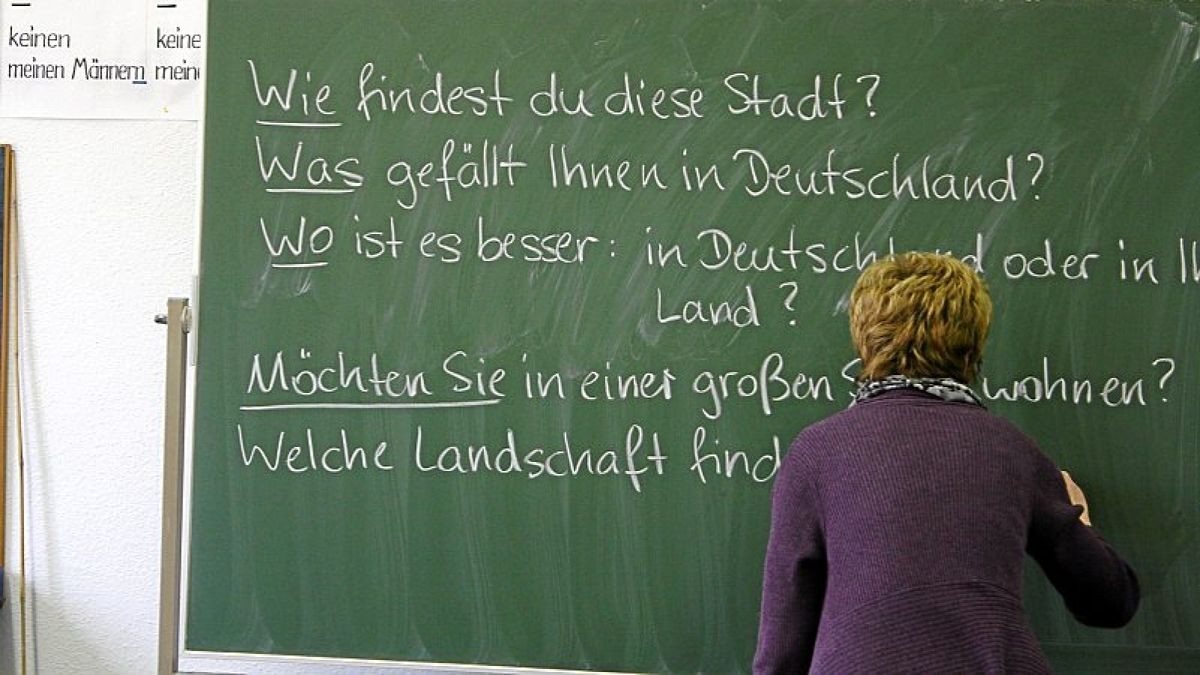 keinen keine
meinen Männern
Wie findest du diese Stadt?
Was gefällt Ihnen in Deutschland?
Wo ist es besser: in Deutschland oder in
Land?
Möchten Sie in einer großen wohnen?
Welche Landschaft